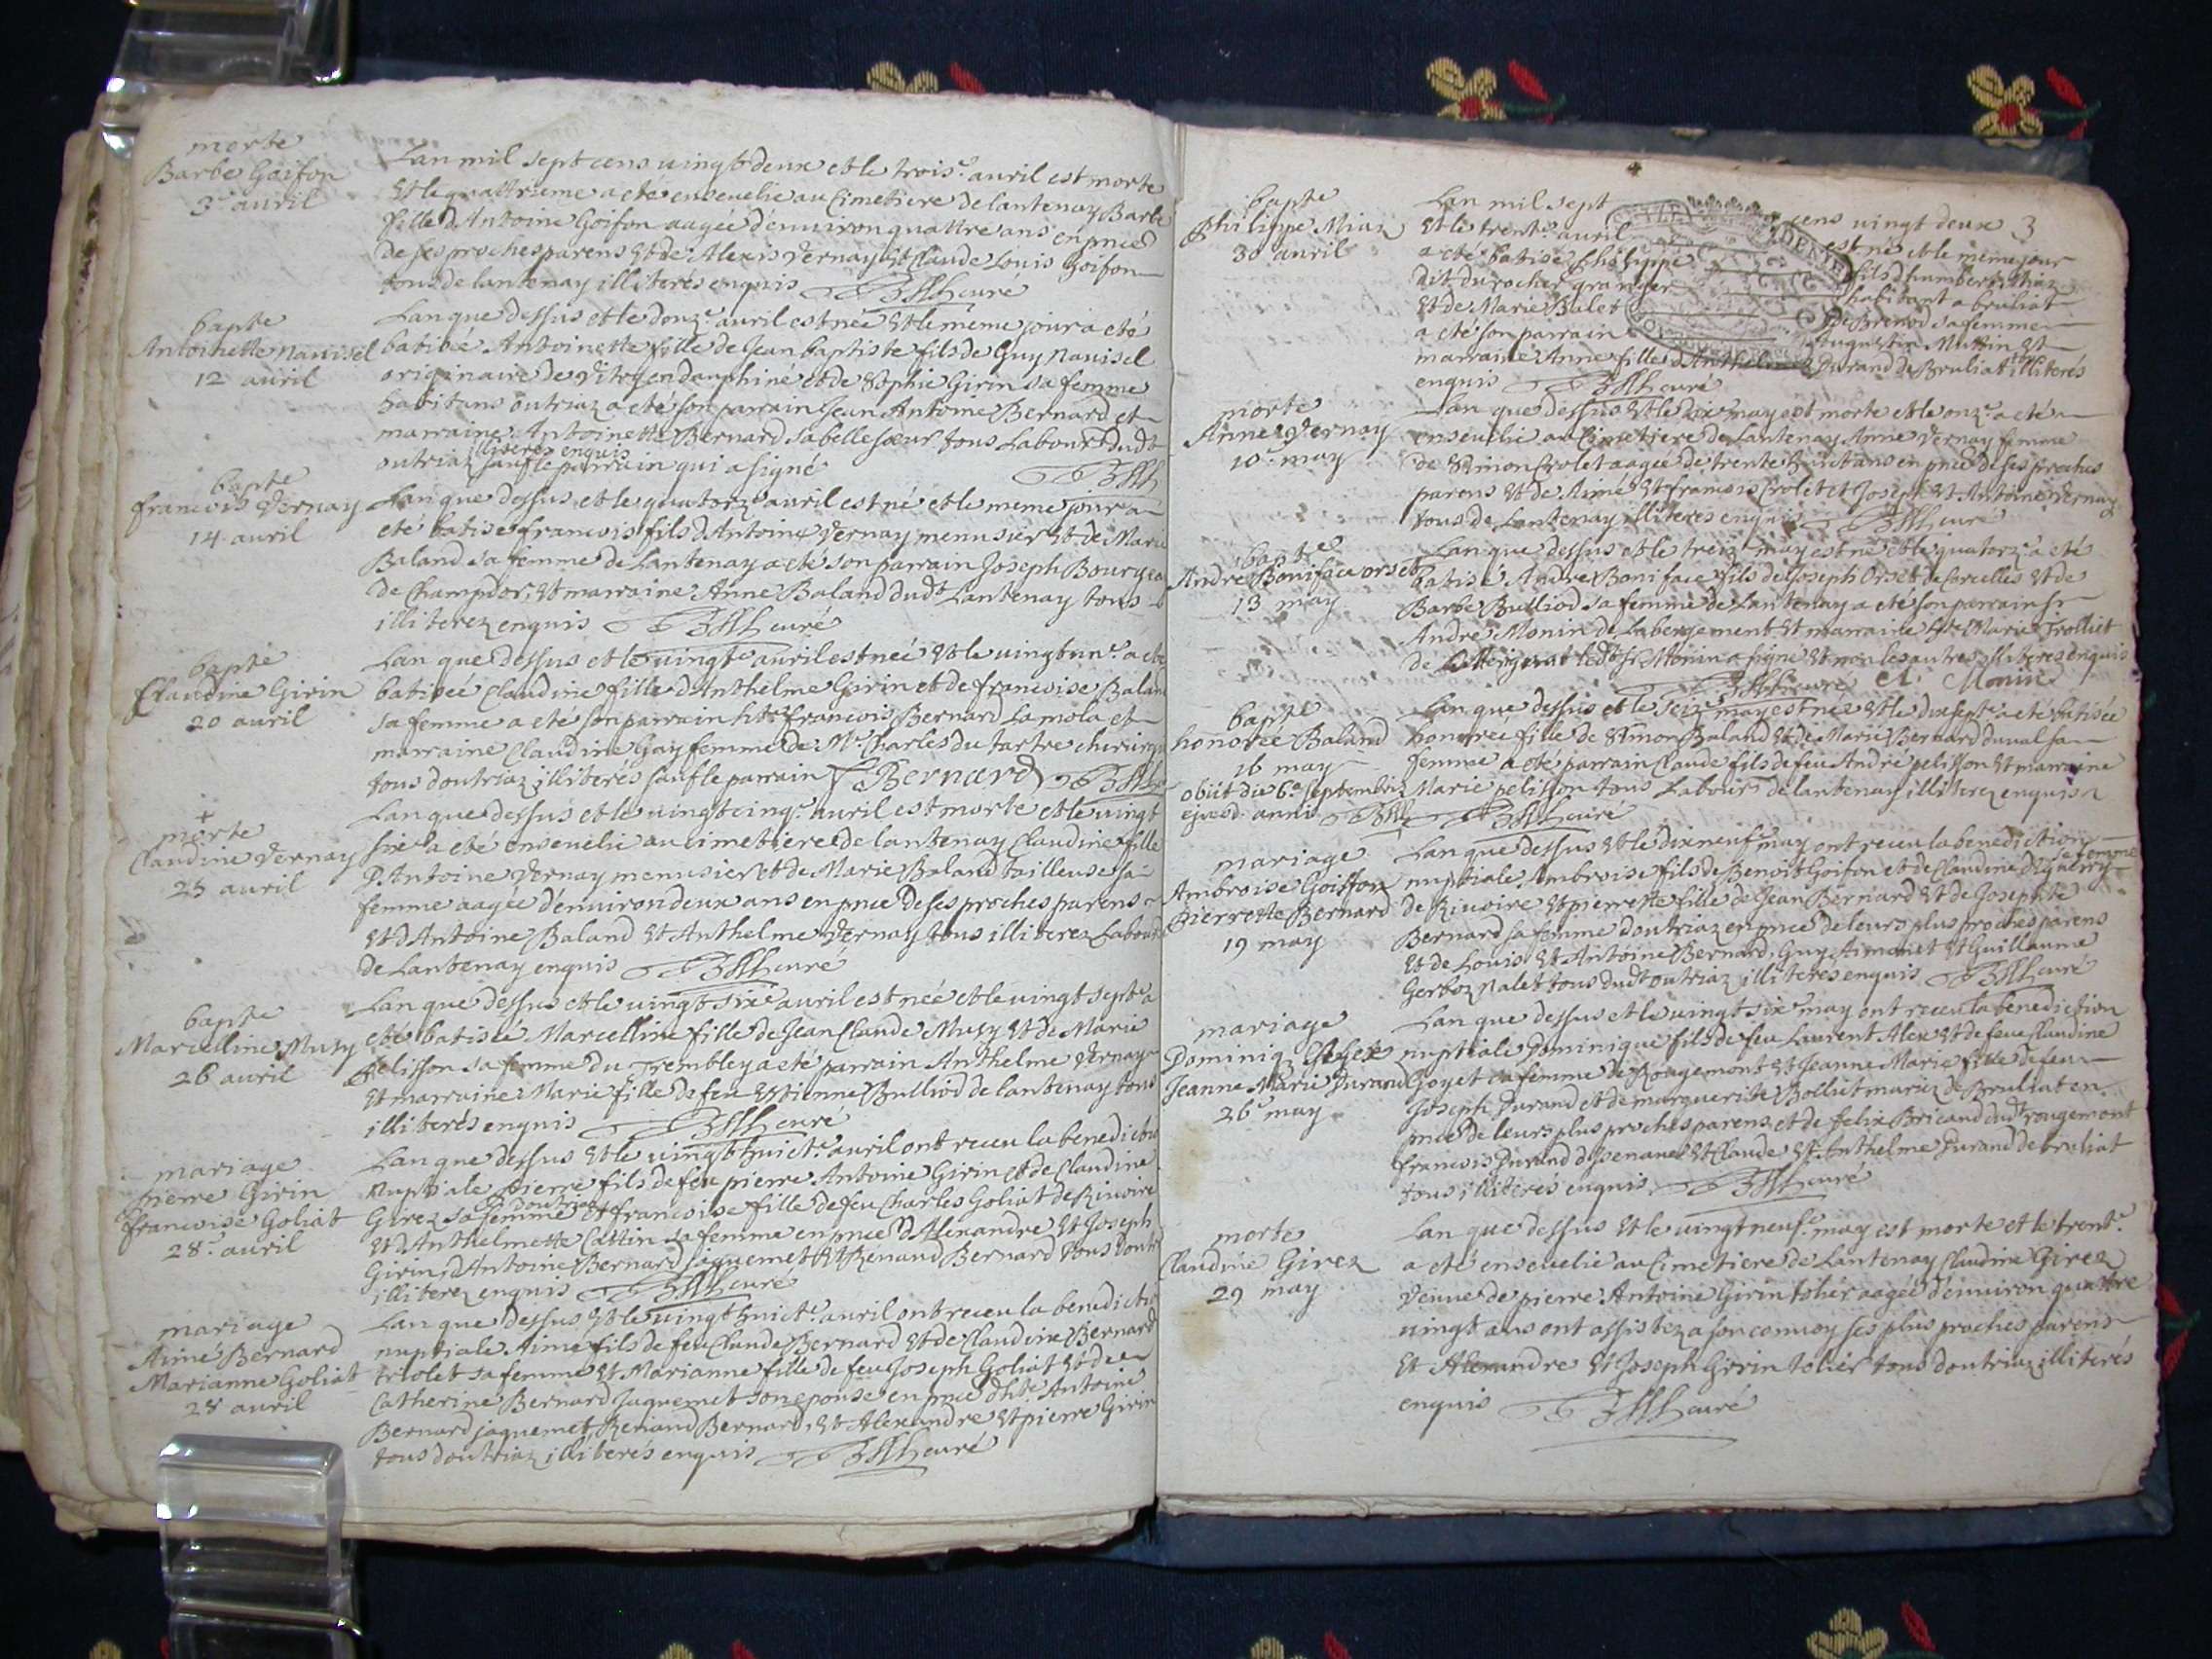 morte
Barbe Goifon
3e avril
Lan mil sept cens vingt deux et le trois.e avril est morte
Et le quattrieme a eté ensevelie au Cimetiere de lantenay Barbe
fille d'Antoine Goifon aagée d'environ quattre ans en pnce
de ses proches parens Et de Alexis Vernay Et Claude Louis Goifon
tous de lantenay illiterés enquis curé
bapte
Antoinette Navisel
12 avril
Lan que dessus et le douz.e avril est née Et le meme jour a eté
batisée Antoinette fille de Jean baptiste fils de Guy Navisel
originaire de Vitry en dauphiné et de Sophie Girin sa femme
habitans outriaz a eté son parrain Jean Antoine Bernard et
marraine Antoinette Bernard sa belle soeur tous Labour.s dudt
illiteres enquis
outriaz sauf le parrain qui a signé
bapte
francois Vernay
14 avril
Lan que dessus et le quatorz.e avril est né et le meme jour a
eté batisé francois fils d'Antoine Vernay menusier Et de Marie
Baland sa femme de Lantenay a eté son parrain Joseph Bourgea
de Champdor, Et marraine Anne Baland dudt Lantenay tous
illiterez enquis curé
bapte
Claudine Girin
20 avril
Lan que dessus et le vingt.e avril est née Et le vingt un.e a eté
batisée Claudine fille d'Anthelme Girin et de francoise Balan
sa femme a eté son parrain hte francois Bernard Lamola et
marraine Claudine Gay femme de Me Charles du tartre chirurgi
tous doutriaz illiterés sauf le parrain Bernard
+
morte
Claudine Vernay
25 avril
Lan que dessus et le vingt cinq.e avril est morte et le vingt
six a eté ensevelie au cimetiere de lantenay Claudine fille
D'Antoine Vernay menusier et de Marie Baland tailleuse sa
femme aagée d'environ deux ans en pnce de ses proches parens
Et d'Antoine Baland Et Anthelme Vernay tous illiterez Labour
de Lantenay enquis curé
bapte
Marcelline Musy
26 avril
Lan que dessus et le vingt six.e avril est née et le vingt sept.e a
eté batisée Marcelline fille de Jean Claude Musy Et de Marie
pelisson sa femme du Trembley a eté parrain Anthelme Vernay
Et marraine Marie fille de feu Estienne Bulliod de lantenay tous
illiterés enquis curé
mariage
pierre Girin
francoise Goliat
28.e avril
Lan que dessus Et le vingt huict.e avril ont receu la benediction
Nuptiale pierre fils de feu pierre Antoine Girin et de Claudine
doutriaz
Girez sa femme Et francoise fille de feu Charles Goliat de Rivoire
Et d'Anthelmette Cattin sa femme en pnce d'Alexandre Et Joseph
Girin, d'Antoine Bernard jaquemet Et Renaud Bernard tous doutri
illiterez enquis curé
mariage
Aimé Bernard
Marianne Goliat
28 avril
Lan que dessus Et le vingt huict.e avril ont receu la benedictio
nuptiale Aimé fils de feu Claude Bernard Et de Claudine Bernard
triolet sa femme Et Marianne fille de feu Joseph Goliat Et de
Catherine Bernard Jaquemet son epouse en pnce dhte Antoine
Bernard jaquemet, Renaud Bernard, Et Alexandre Et pierre Girin
tous doutriaz illiterés enquis curé
bapte
philippe Miaz
30 avril
Lan mil sept cens vingt deux 3
Et le trent.e avril est né et le meme jour
a eté batisé philippe fils d'humbert Miaz
dit du rocher granger habitant a bruliat
Et de Marie Balet de Brenod sa femme
a eté son parrain Augustin Muttin Et
marraine Anne fille d'Anthelme Durand de Bruliat illiterés
enquis curé
morte
Anne Vernay
10.e may
Lan que dessus Et le dix may est morte et le onz.e a eté
ensevelie au Cimetiere de Lantenay Anne Vernay femme
de Simon Crolet aagée de trente huict ans en pnce de ses proches
parens Et de Aimé Et francois Crolet et Joseph Et Antoine Vernay
tous de Lantenay illiteres enquis curé
bapte
André Boniface orset
13 may
Lan que dessus et le treiz.e may est né et le quatorz.e a eté
batisé André Boniface fils de Joseph Orset de Corcelles Et de
Barbe Bulliod sa femme de Lantenay a eté son parrain sr
André Monin de Labergement Et marraine Marie Trolliet
de ledt sr Monin a signé Et non les autres illiteres enquis
curé A. Monin
bapte
honorée Baland
16 may
obiit die 6.a septembris
ejusd. anni
Lan que dessus et le seiz.e may est née Et le dixsept.e a eté batisée
honorée fille de Simon Baland Et de Marie Bernard duval sa
femme a eté parrain Claude fils de feu André pelisson Et marraine
Marie pelisson tous Labour.s de lantenay illiterez enquis
curé
mariage
Ambroise Goiffon
pierrette Bernard
19 may
Lan que dessus Et le dixneuf.e may ont receu la benediction
sa femme
nuptiale Ambroise fils de Benoit Goifon et de Claudine
de Rivoire Et pierrette fille de Jean Bernard Et de Josephte
Bernard sa femme doutriaz en pnce de leurs plus proches parens
Et de Louis Et Antoine Bernard, Guy Aimonet Et Guillaume
Gerboz Nalet tous dudt outriaz illiterés enquis curé
mariage
Dominiq Alex
Jeanne Marie Durand
26.e may
Lan que dessus et le vingt six.e may ont receu la benediction
nuptiale Dominique fils de feu Laurent Alex Et de feue Claudine
Goyet sa femme de Rougemont Et Jeanne Marie fille de feu
Joseph Durand et de marguerite Bolliet mariez de Bruliat en
pnce de leurs plus proches parens et de felix Bricaud dudt rougemont
francois Durand Et Claude Et Anthelme Durand de bruliat
tous illiterés enquis curé
morte
Claudine Girez
29 may
Lan que dessus Et le vingt neuf.e may est morte et le trent.e
a eté ensevelie au Cimetiere de Lantenay Claudine Girez
Veuve de pierre Antoine Girin tohér aagée d'environ quattre
vingt ans ont assistez a son convoy ses plus proches parens
Et Alexandre Et Joseph Girin tohér tous doutriaz illiterés
enquis curé